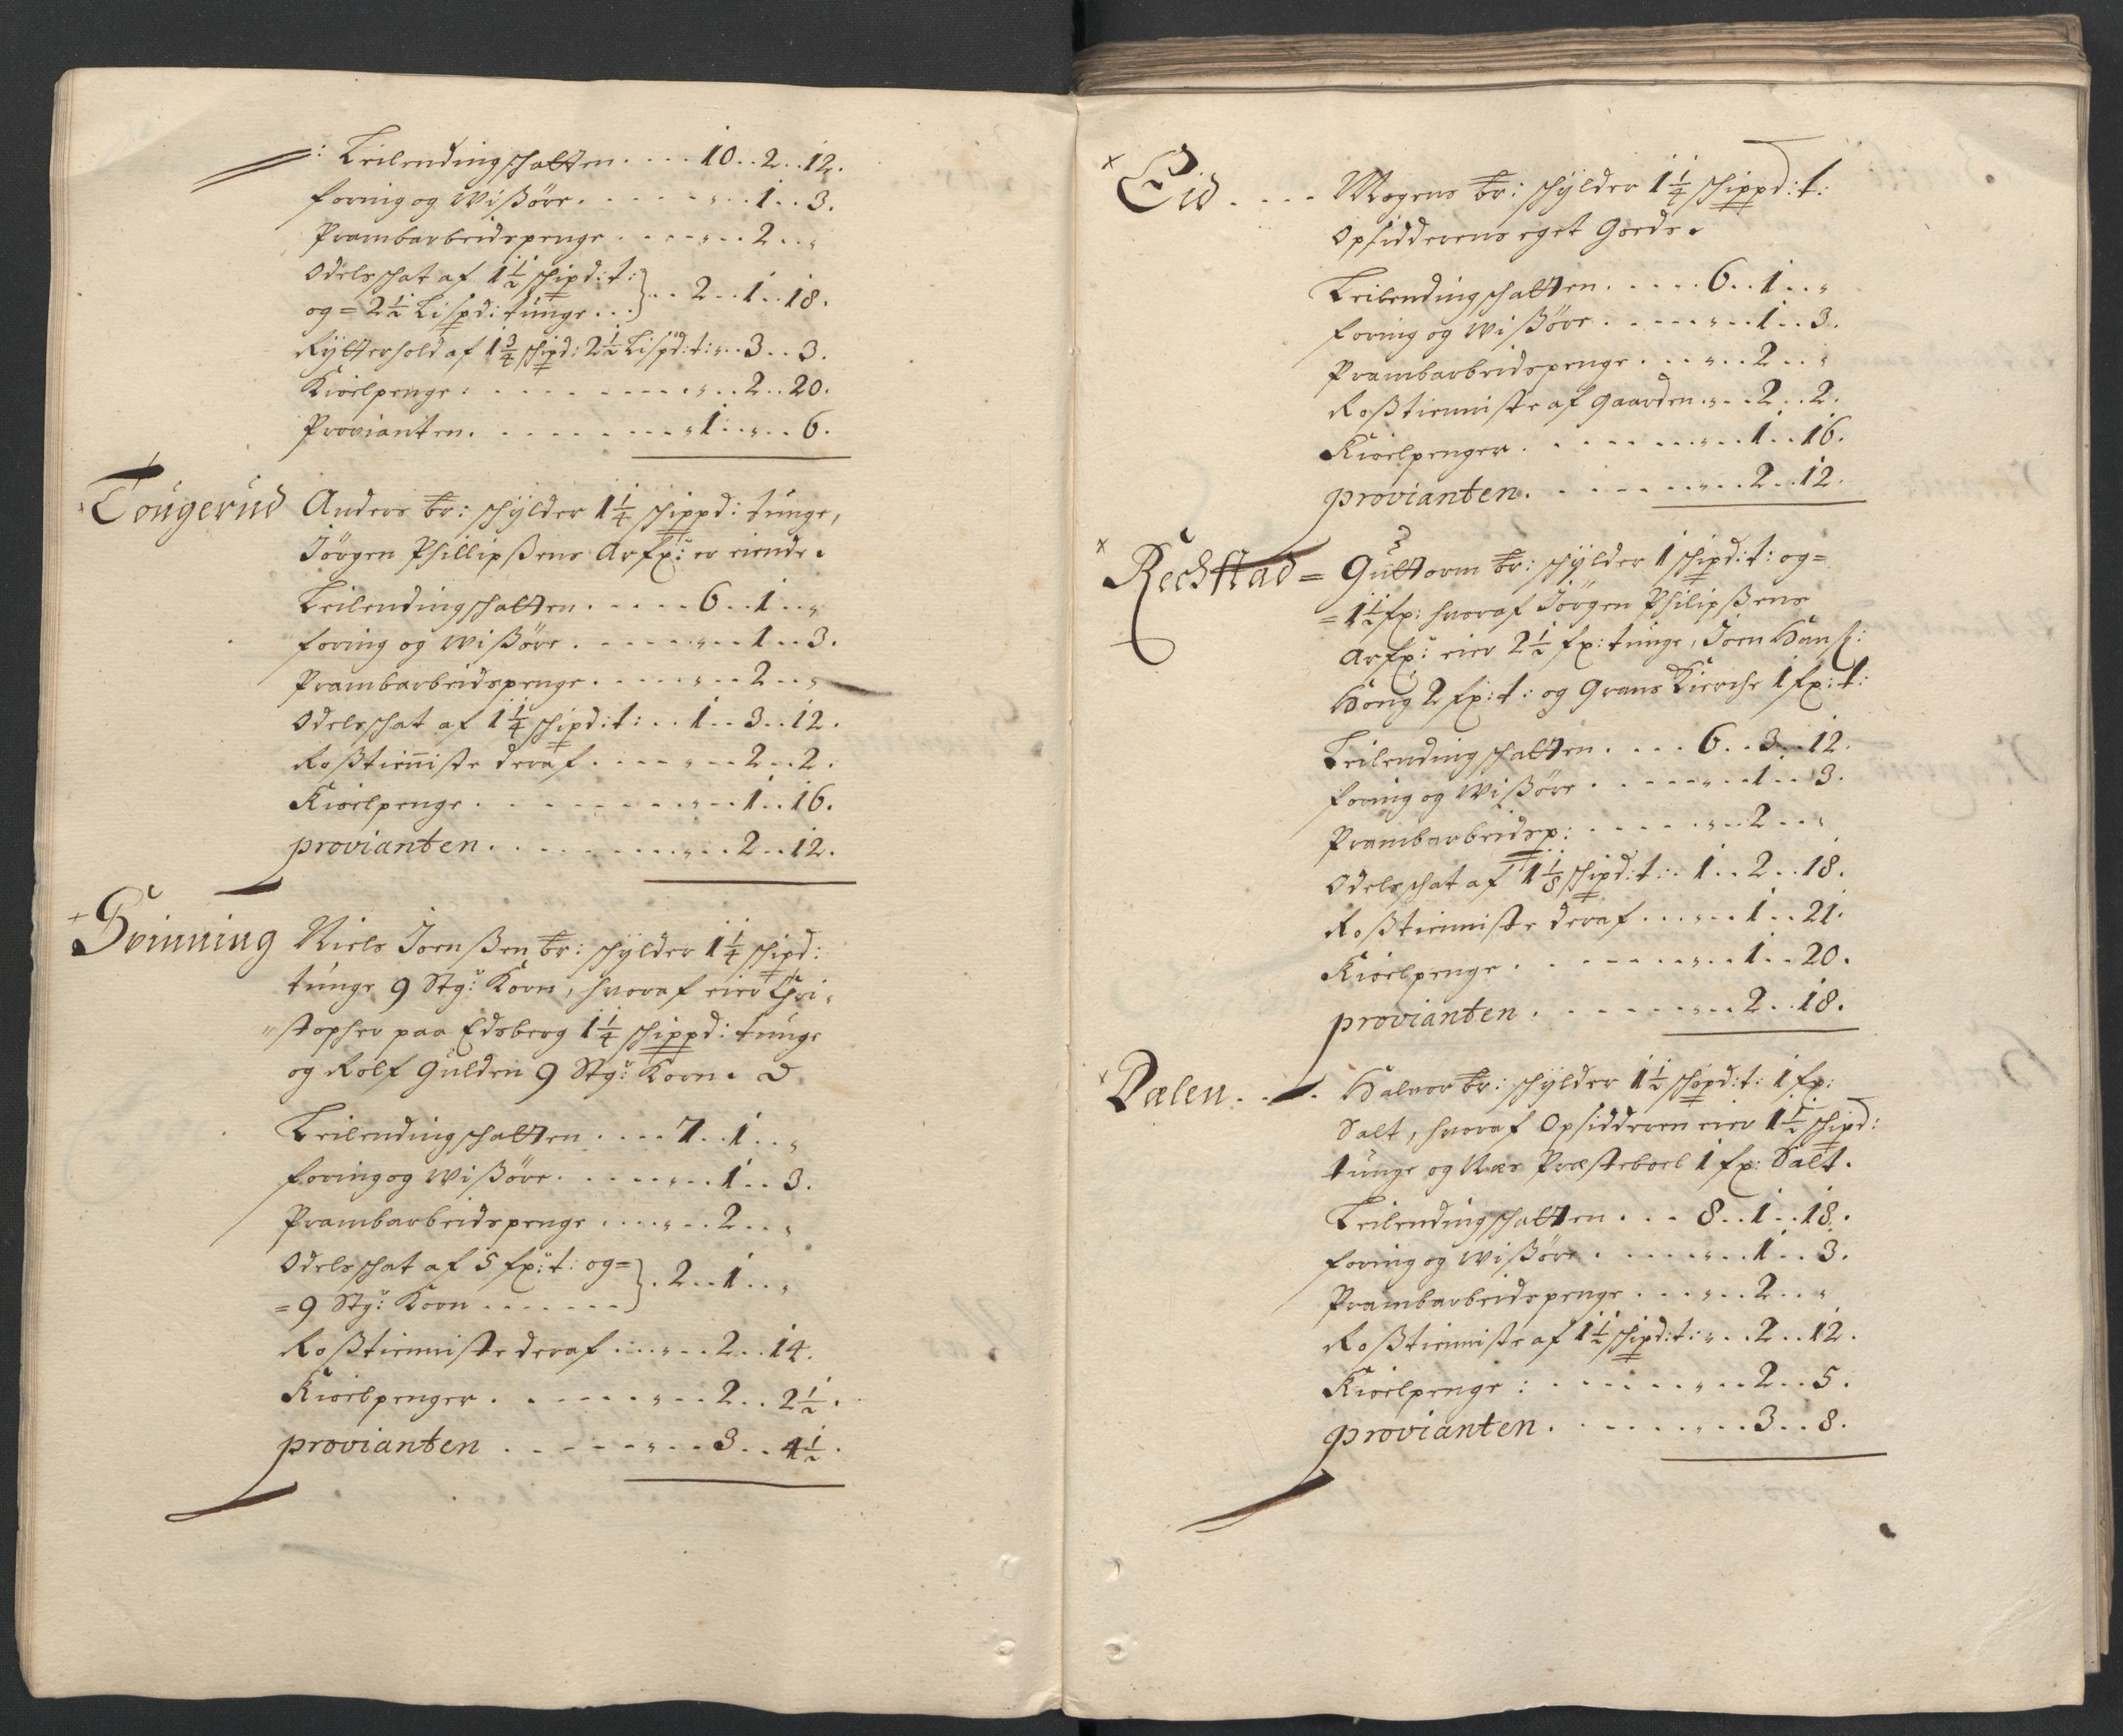 : Leilendingschatten . . . . 10 . . 2 . . 12 .
foring og Wißöre . . . . . . . „ . . 1 . . 3 .
Prambarbeidspenge . . . . „ . . 2 . . „
Odelsschat af 1 1/2 schipd: t:
og = 2 1/2 Lispd: tunge . . . } . . 2 . . 1 . . 18 .
Rÿtterhold af 1 3/4 schipd: 2 1/2 Lispd: t: „ . . 3 . . 3 .
Kioelpenge : . . . . . . . . . „ . . 2 . . 20 .
Provianten . . . . . . . . . „ 1 . . „ . . 6 .
Tougerud Anders br: schÿlder 1 1/4 schippd: tunge,
Jörgen Phillipßens Arfx: er eiende .
Leilendingschatten . . . . . 6 . . 1 . . „
foring og Wißöre . . . . . . „ . . 1 . . 3 .
Prambarbeidspenge . . . . . „ . . 2 . . „
Odelsschat af 1 1/4 schipd: t: . . 1 . . 3 . . 12 .
Roßtienniste deraf . . . . „ . . 2 . . 2 .
Kioelpenge . . . . . . . . „ . . 1 . . 16 .
provianten . . . . . . . . . „ . . 2 . . 12 .
+ Svinning Niels Joenßen br: schÿlder 1 1/4 schipd:
tunge 9 Stg: Korn, hvoraf eier Chri„
„stopher paa Edsberg 1 1/4 schippd: tunge
og Rolf Gulden 9 Stg: Korn .
Leilendingschatten . . . . 7 . . 1 . . „
foring og Wißöre . . . . . . „ . . 1 . . 3 .
Prambarbeidspenge . . . . „ . . 2 . . „
Odelsschat af 5 fx: t: og =
= 9 Stg: Korn . . . . . . . } . 2 . . 1 . . „
Roßtienniste deraf : . . „ . . 2 . . 14 .
Kioelpenger . . . . . . . „ . . 2 . . 2 1/2 .
provianten . . . . . . „ . . 3 . . 4 1/2 .
x Eid . . . . Mogens br: schÿlder 1 1/4 schippd: t:
Opsidderens eget Goeds .
Leilendingschatten . . . . . 6 . . 1 . . „
foring og Wißöre . . . . . . „ . . 1 . . 3 .
Prambarbeidspenge . . . „ . . 2 . . „
Roßtienniste af Gaarden . „ . . 2 . . 2 .
Kioelpenger . . . . . . . . „ . . 1 . . 16 .
provianten . . . . . . . „ . . 2 . . 12 .
x Rechstad = Guttorm br: schÿlder 1 schipd: t: og =
= 1 1/2 fx: hvoraf Jörgen Philipßens
Arfx: eier 2 1/2 fx: tunge, Joen Hanß:
Houg 2 fx: t: og Grans Kierche 1 fx: t:
Leilendingschatten . . . . 6 . . 3 . . 12 .
foring og Wißöre . . . . . . „ . . 1 . . 3 .
Prambarbeidsp: . . . . . . „ . . 2 . . „
Odelsschat af 1 1/8 schipd: t: . . 1 . . 2 . . 18 .
Roßtienniste deraf . . . „ . . 1 . . 21 .
Kioelpenge . . . . . . . . „ . . 1 . . 20 .
provianten . . . . . . . „ . . 2 . . 18 .
x Dalen . . . Halvor br: schÿlder 1 1/2 schipd: t: 1 fx:
Salt, hvoraf Opsidderen eier 1 1/2 schipd:
tunge og Næs Præsteboel 1 fx: Salt .
Leilendingschatten . . . 8 . . 1 . . 18 .
foring og Wißöre . . . . . . „ . . 1 . . 3 .
Prambarbeidspenge . . . „ . . 2 . . „
Roßtienniste af 1 1/2 schipd: t: „ . . 2 . . 12 .
Kioelpenge : . . . . . . „ . . 2 . . 5 .
provianten . . . . . . . „ . . 3 . . 8 .